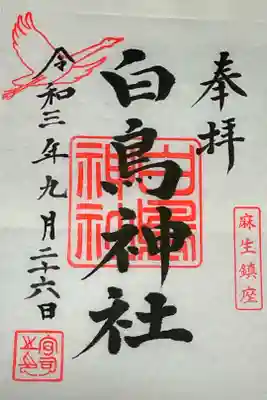 奉拝
麻生鎮座
白鳥神社
白鳥神社
令和三年九月二十六日
宮司之印